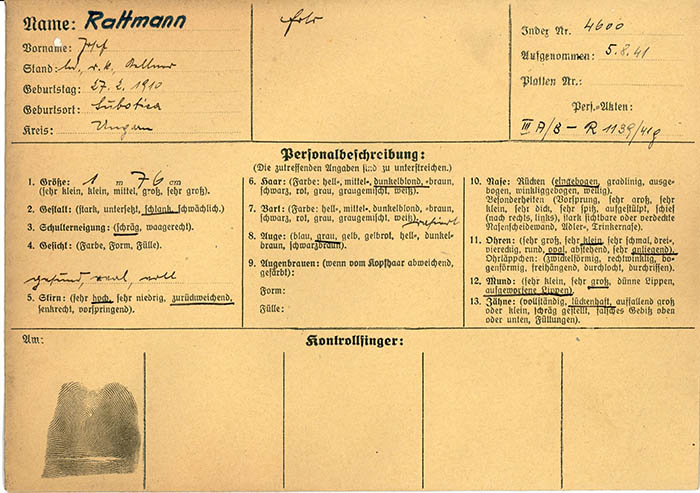 Name: Rattmann
Vorname: Josef
Stand: led., r. k., Kellner
Geburtstag: 27. 2. 1910
Geburtsort: Subotica
Kreis: Ungarn
Index Nr. 4600
Aufgenommen: 5.8.41
Platten Nr.:
Pers.-Akten:
III A/B - R 1139/41g
Personalbeschreibung:
(Die zutreffenden Angaben sind zu unterstreichen.)
1. Größe: 1 m 76 cm
(sehr klein, klein, mittel, groß, sehr groß).
2. Gestalt: (stark, untersetzt, schlank, schwächlich).
3. Schulterneigung: (schräg, waagerecht).
4. Gesicht: (Farbe, Form, Fülle).
gesund, oval, voll
5. Stirn: (sehr hoch, sehr niedrig, zurückweichend,
senkrecht, vorspringend).
6. Haar: (Farbe: hell-, mittel-, dunkelblond, -braun,
schwarz, rot, grau, graugemischt, weiß).
7. Bart: (Farbe: hell-, mittel-, dunkelblond, -braun,
schwarz, rot, grau, graugemischt, weiß). rasiert
8. Auge: (blau, grau, gelb, gelbrot, hell-, dunkel-
braun, schwarzbraun).
9. Augenbrauen: (wenn vom Kopfhaar abweichend,
gefärbt):
Form:
Fülle:
10. Nase: Rücken (eingebogen, gradlinig, ausge-
bogen, winkliggebogen, wellig).
Besonderheiten (Vorsprung, sehr groß, sehr
klein, sehr dick, sehr spitz, aufgestülpt, schief
(nach rechts, links), stark sichtbare oder verdeckte
Nasenscheidewand, Adler-, Trinkernase).
11. Ohren: (sehr groß, sehr klein, sehr schmal, drei-,
viereckig, rund, oval, abstehend, sehr anliegend).
Ohrläppchen: (zwickelförmig, rechtwinklig, bo-
genförmig, freihängend, durchlocht, durchrissen).
12. Mund: (sehr klein, sehr groß, dünne Lippen,
aufgeworfene Lippen).
13. Zähne: (vollständig, lückenhaft, auffallend groß
oder klein, schräg gestellt, falsches Gebiß oben
oder unten, Füllungen).
Am:
Kontrollfinger: